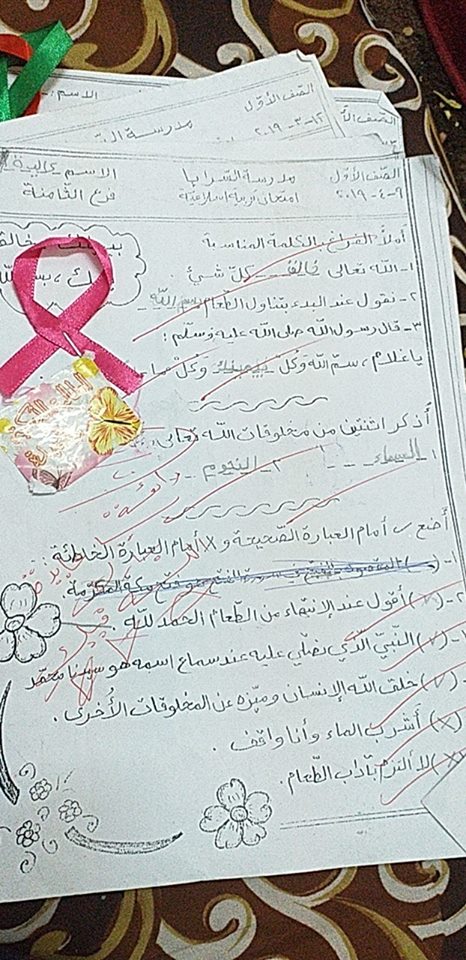 الاسم :
الصّف الأوّل
مدرسة
١٢-٣-٢٠١٩
الصّف الأوّل مدرسة السّرايا الاسم
٩-٤-٢٠١٩ امتحان تربية اسلاميّة فرع الثّامنة
أملأ الفراغ بالكلمة المناسبة
١- الله تعالى خالق كلّ شيْ .
٢- نقول عند البدء بتناول الطّعام بسم الله
٣- قال رسول الله صلى الله عليه وسلّم :
ياغلام ، سمّ الله وكلْ بيمينك وكُلْ
أُذكر اثنتين من مخلوقات الله تعالى
١- السماء ٢- النجوم
رائعة
أضع ✓ أمام العبارة الصّحيحة و X أمام العبارة الخاطئة
١- (
٢- (✓) أقول عند الإنتهاء من الطّعام الحمد للّه .
(✓) النّبيّ الّذي نصلّي عليه عند سماع اسمه هو سيدنا محمّد
(✓) خلق اللّه الإنسان وميّزه عن المخلوقات الأُخرى .
(X) أشرب الماء وأنا واقف .
(X) لا ألتزم بآداب الطّعام .